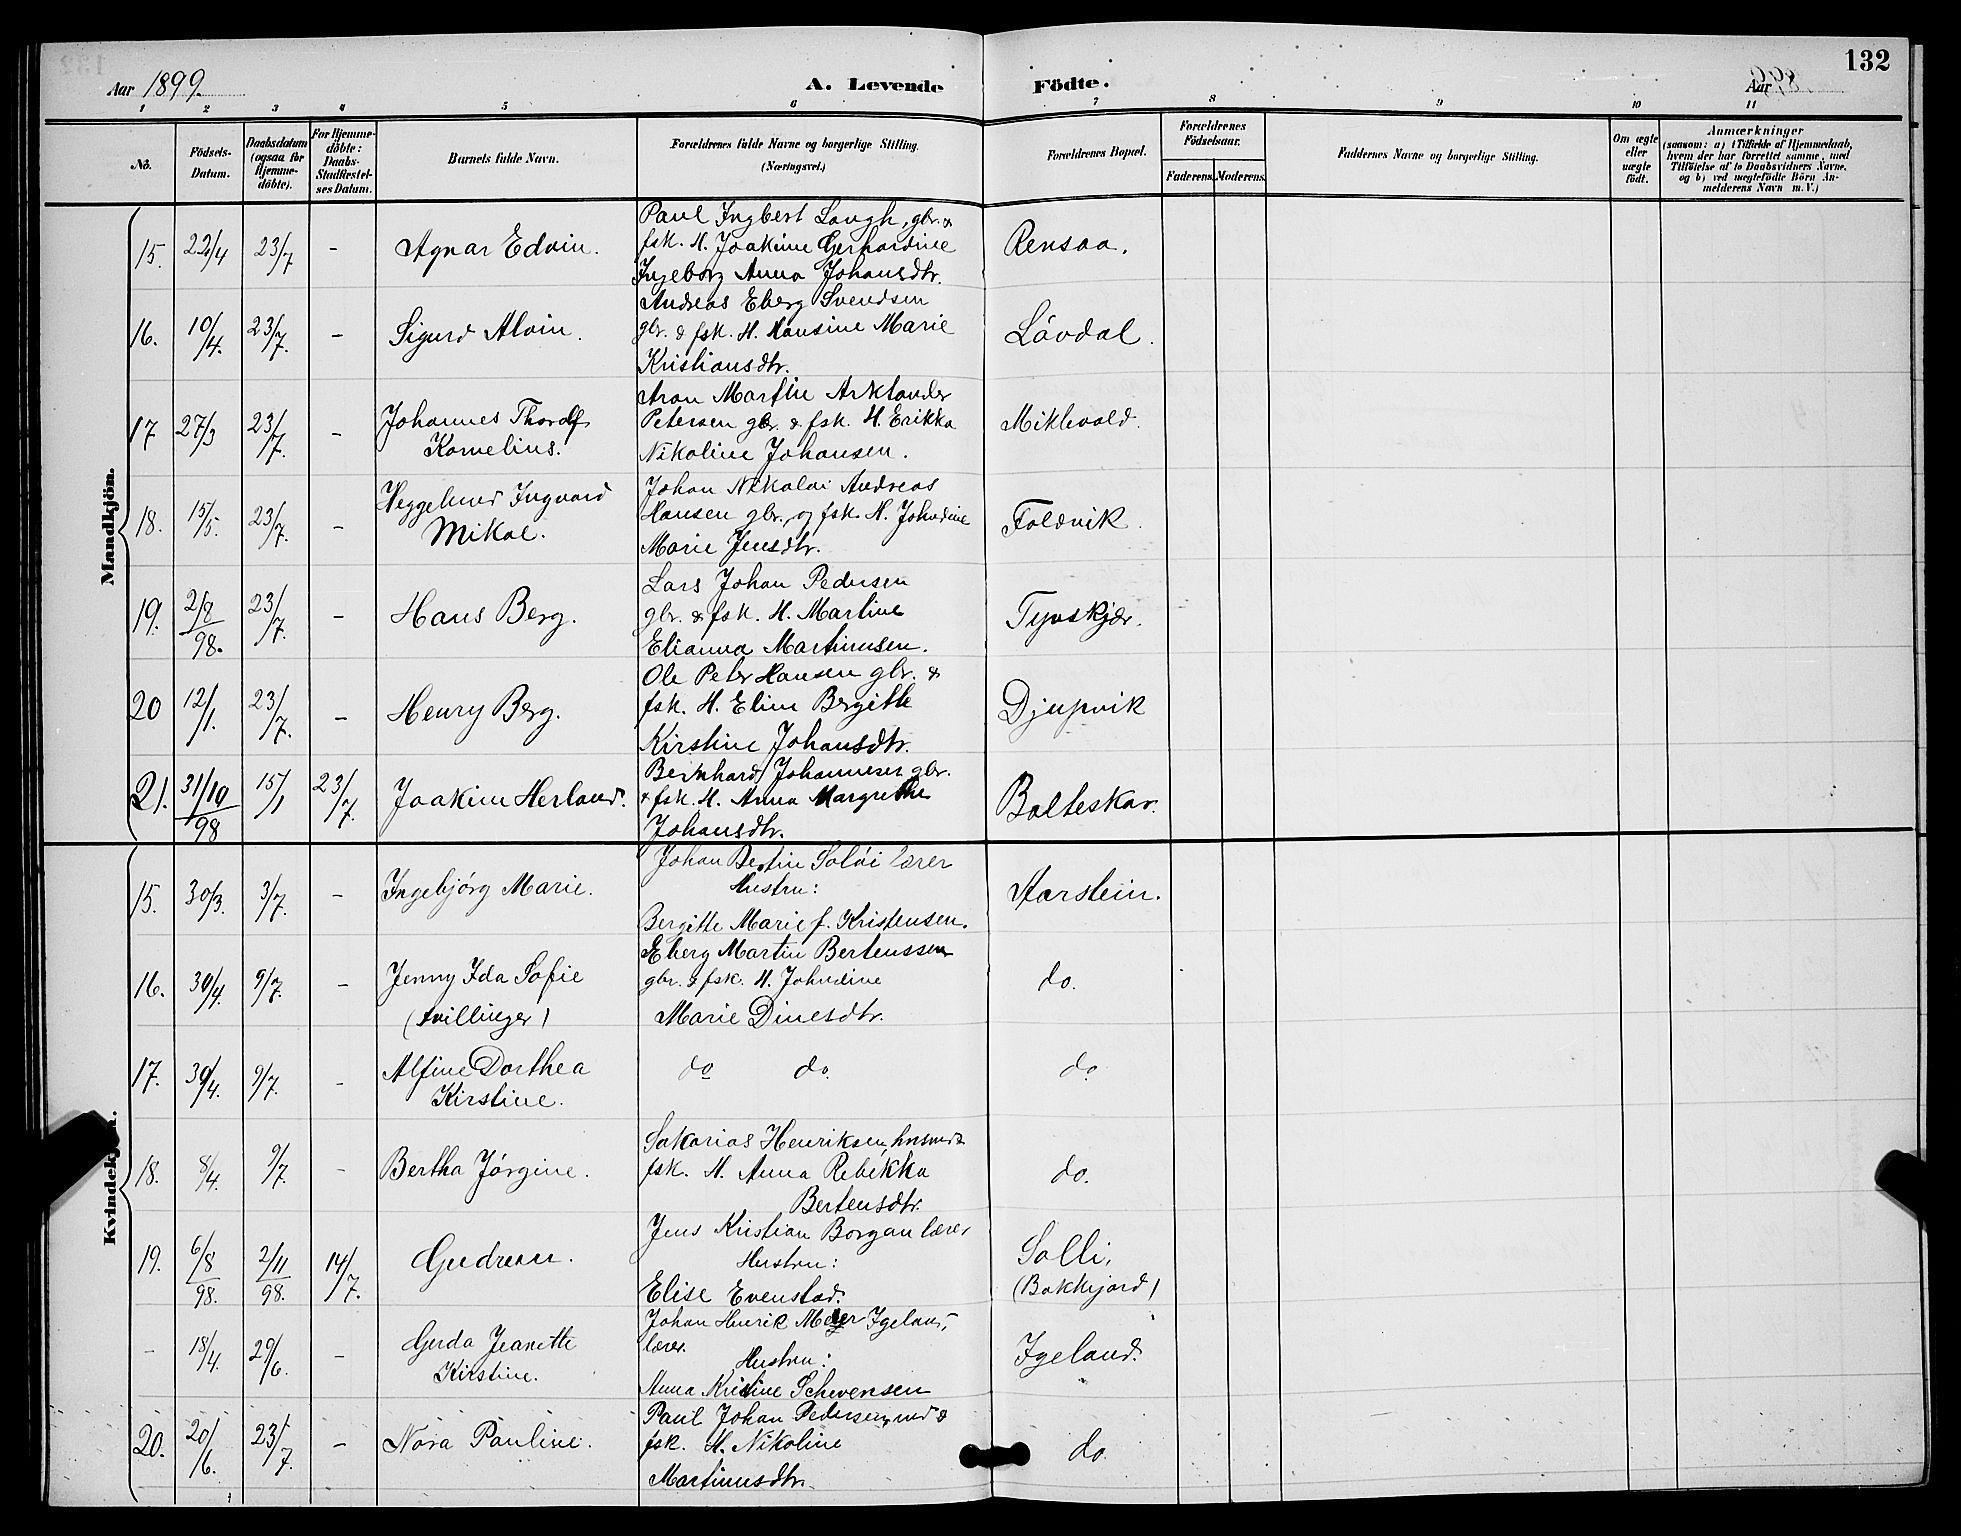 132
Aar 1899.
A. Levende Födte.
Aar
1 2 3 4 5 6 7 8 9 10 11
No.
Födsels-Datum.
Daabsdatum (ogsaa for Hjemme-döbte).
For Hjemme-döbte: Daabs-Stadfæstel-ses Datum.
Barnets fulde Navn.
Forældrenes fulde Navne og borgerlige Stilling. (Næringsvei.)
Forældrenes Bopæl.
Forældrenes Födselsaar.
Faderens. Moderens.
Faddernes Navne og borgerlige Stilling.
Om ægte eller uægte födt.
Anmærkninger
(saasom: a) i Tilfælde af Hjemmedaab, hvem der har forrettet samme, med Tilföielse af to Daabsvidners Navne, og b) ved uægtefödte Börn An-melderens Navn m. V.)
Mandkjön.
15. 22/4 23/7 - Agnar Edvin.
Paul Ingbert Laugh, gbr. &
fsk. H. Joakime Gerhardine
Ingeborg Anna Johansdtr.
Rensaa.
16. 10/4. 23/7. - Sigurd Alvin.
Andreas Eberg Svendsen
gbr. & fsk. H. Hansine Marie
Kristiansdtr.
Lóvdal.
17 27/3 23/7. - Johannes Thorolf
Kornelius.
Aron Martin Arktander
Petersen gbr. & fsk. H. Erikka
Nikoline Johansen.
Miklevold.
18. 15/5. 23/7. - Heggelund Ingvard
Mikal.
Johan Nikolai Andreas
Hansen gbr., og fsk. H. Johndine
Marie Jensdtr.
Foldvik.
19. 2/8 98. 23/7. - Hans Berg.
Lars Johan Pedersen
gbr. & fsk. H. Martine
Elianna Martinusen.
Tyvskjær.
20 12/1. 23/7. - Henry Berg.
Ole Peter Hansen gbr. &
fsk. H. Eline Bergitte
Kirstine Johansdtr.
Djupvik
21. 31/10 98 15/1 23/7. Joakim Herland.
Bernhard Johannesen gbr.
& fsk. H. Anna Margrethe
Johansdtr.
Bolteskar.
Kvindekjön.
15. 30/3. 3/7. - Ingebjórg Marie.
Johan Bertin Solói lærer
Hustru:
Bergitte Marie f. Kristensen.
Aarstein.
16. 30/4. 9/7. - Jenny Ida Sofie
(tvillinger)
Eberg Martin Bertenssen
gbr. & fsk. H. Johndine
Marie Dinesdtr.
do.
17. 30/4. 9/7. - Alfine Dorthea
Kirstine.
do do.
do
18. 8/4. 9/7. - Bertha Jórgine.
Sakarias Henriksen, husmd &
fsk. H. Anna Rebekka
Bertensdtr.
do.
19. 6/8 98. 2/11 98. 14/7. Gudrun.
Jens Kristian Borgan lærer
Hustru:
Elise Evenstad.
Solli,
(Bakkejord)
- 18/4. 29/6. - Gerda Jeanette
Kirstine.
Johan Henrik Meyer Igeland,
lærer.
Hustru:
Anna Kristine Schevensen
Igeland.
20. 20/6. 23/7. - Nora Pauline.
Paul Johan Pedersen, md &
fsk. H. Nikoline
Martinusdtr.
do.